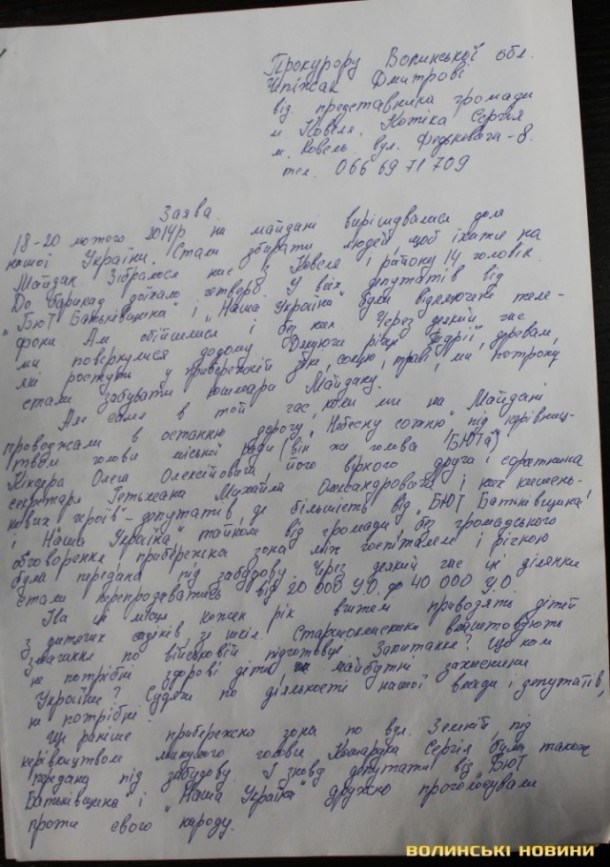 Прокурору Волинської обл.
Шпіжак Дмитрові
від представника громади
м. Ковеля, Котіка Сергія
м. Ковель вул. Федьковича-8.
тел. 066 69 71 709
Заява.
18-20 лютого 2014р на майдані вирішувалася доля
нашої України. Стали збирати людей, щоб їхати на
Майдан. Зібралося нас з Ковеля і району 14 чоловік.
До барикад доїхало четверо. У всіх депутатів від
"БЮТ Батьківщина" і "Наша Україна" були відключені теле-
фони. Ми обійшлися і без них. Через деякий час
ми повернулися додому. Дякуючи річці, деревам,
які ростуть у прибережній зоні, сонцю, траві, ми потроху
стали забувати кошмари Майдану.
Але саме в той час, коли ми на Майдані
проводжали в останню дорогу "Небесну сотню" під керівниц-
твом голови міської ради (він же голова БЮТа)
Кіндера Олега Олексійовича, його вірного друга і соратника
секретаря Гетьмана Михайла Олександровича і їх кишень-
кових "героїв"-депутатів, де більшість від "БЮТ Батьківщина"
і "Наша Україна" тайком від громади, без громадського
обговорення, прибережна зона між госпіталем і річкою
була передана під забудову. Через деякий час ці ділянки
стали перепродаватись від 20 000 У.О. до 40 000 У.О
На ці місця кожен рік вчителі приводять дітей
з дитячих садіків, зі шкіл. Старшокласники влаштовують
змагання по військовій підготовці. Запитання? Що нам
не потрібні здорові діти, чи майбутні захисники
України? Судячи по діяльності нашої влади і депутатів,
не потрібні.
Ще раніше прибережна зона по вул. Зеленій, під
керівництвом минулого голови Кошарука Сергія була також
передана під забудову. І знову депутати від "БЮТ
Батьківщина" і "Наша Україна" дружно проголосували
проти свого народу.
ВОЛИНСЬКІ НОВИНИ